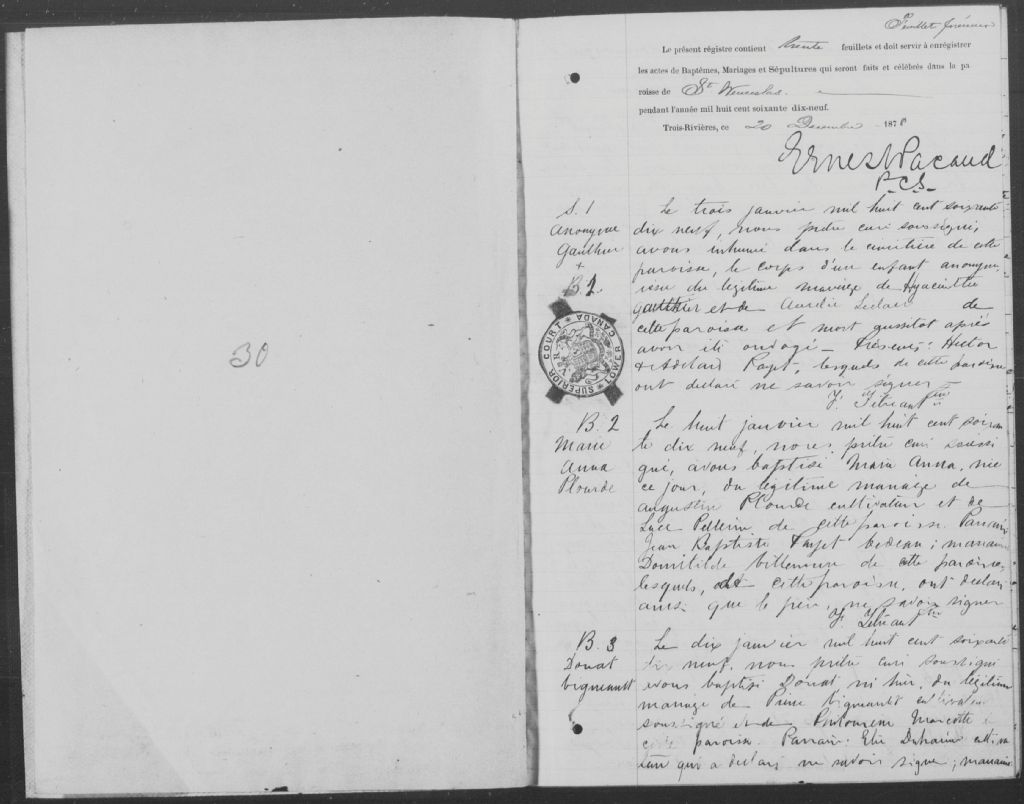 30
Feuillet premier
Le présent régistre contient trente feuillets et doit servir à enrégistrer
les actes de Baptêmes, Mariages et Sépultures qui seront faits et célébrés dans la pa
roisse de St Wenceslas.
pendant l'année mil huit cent soixante dix-neuf.
Trois-Rivières, ce 20 Decembre 1878
Ernest Pacaud
P.C.S.
S. 1
Anonyme
Gauthier
+
B 1.
SUPERIOR COURT LOWER CANADA
V R
Le trois janvier mil huit cent soixante
dix neuf, nous prêtre curé soussigné,
avons inhumé dans le cimetière de cette
paroisse, le corps d'un enfant anonyme
issu du légitime mariage de Hyacinthe
Gauthier et de Aurélie Leclair de
cette paroisse et mort aussitot après
avoir été ondoyé - Présents: Hector
& Adélard lesquels de cette paroisse
ont déclaré ne savoir signer
B. 2
Marie
Anna
Plourde
Le huit janvier mil huit cent soixan
te dix neuf, nous, prêtre curé soussi
gné, avons baptisé Marie Anna, née
ce jour, du légitime mariage de
Augustin Plourde cultivateur et de
Luce Pellerin de cette paroisse. Parrain
Jean Baptiste bedeau; marraine
Domitilde de cette paroisse,
lesquels, de cette paroisse, ont déclaré
ainsi que le père, ne savoir signer
B. 3
Donat
Vigneault
Le dix janvier mil huit cent soixante
dix neuf, nous prêtre curé soussigné
avons baptisé Donat né hier, du légitime
mariage de Pierre Vigneault cultivateur
soussigné et de Marcotte
cette paroisse. Parrain: Elie
qui a déclaré ne savoir signer; marraine